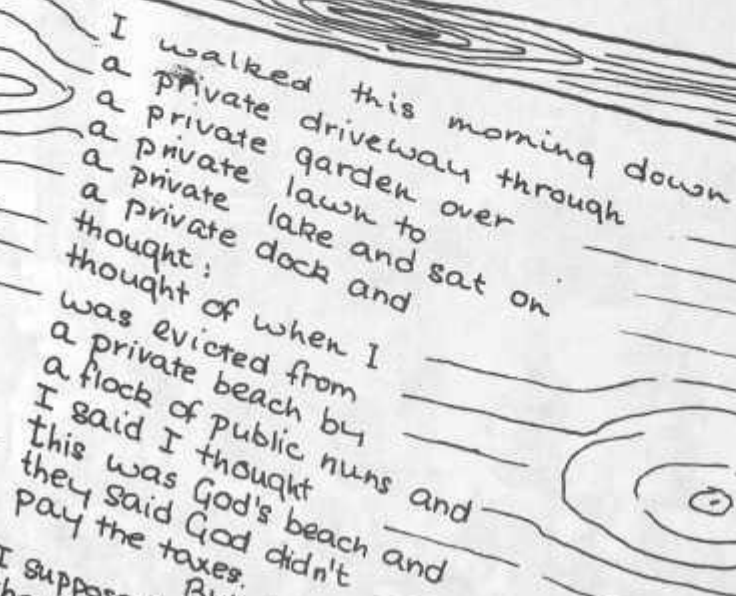 I walked this morning down
a private driveway through
a private garden over
a private lawn to
a private lake and sat on
a private dock and
thought:
thought of when I
was evicted from
a private beach by
a flock of public nuns and
I said I thought
this was God's beach and
they said God didn't
pay the taxes.
I suppose